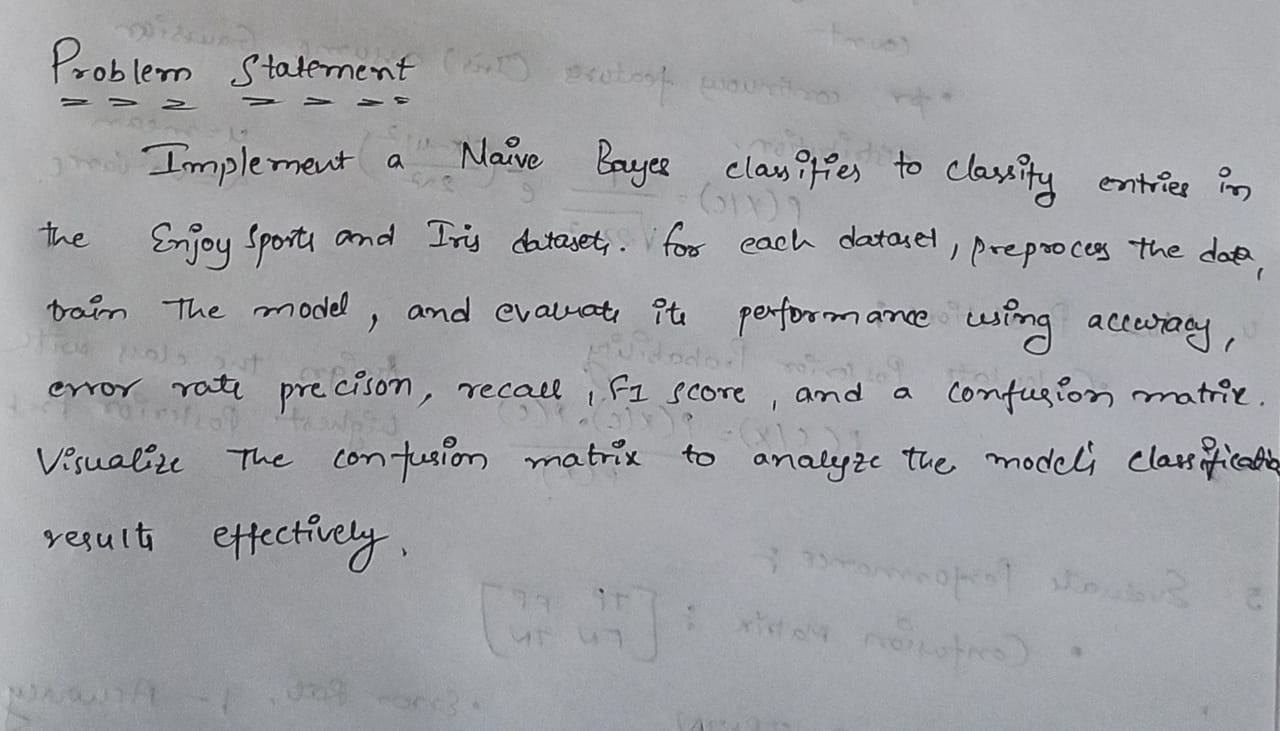 Problem Statement
Implement a Naive Bayes classifier to classify entries in
the Enjoy Sports and Iris datasets. for each dataset, preprocess the data,
train the model, and evaluate its performance using accuracy,
error rate precison, recall, F1 score, and a confusion matrix.
Visualize the confusion matrix to analyze the model's classification
results effectively.